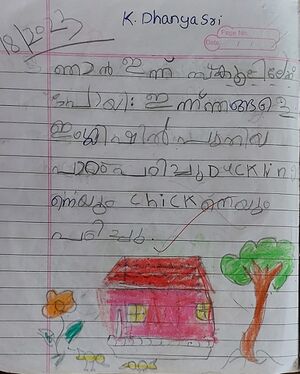 K. Dhanya Sri
18/2023
Page No.
Date: / /
ഞാൻ ഇന്ന് സ്കൂളിലേക്ക്
പോയി. ഇന്ന് ഞങ്ങളെ
ഇംഗ്ലീഷിൽ
പാഠം പഠിച്ചു Duckling
നെയും Chick നെയും
പഠിച്ചു.